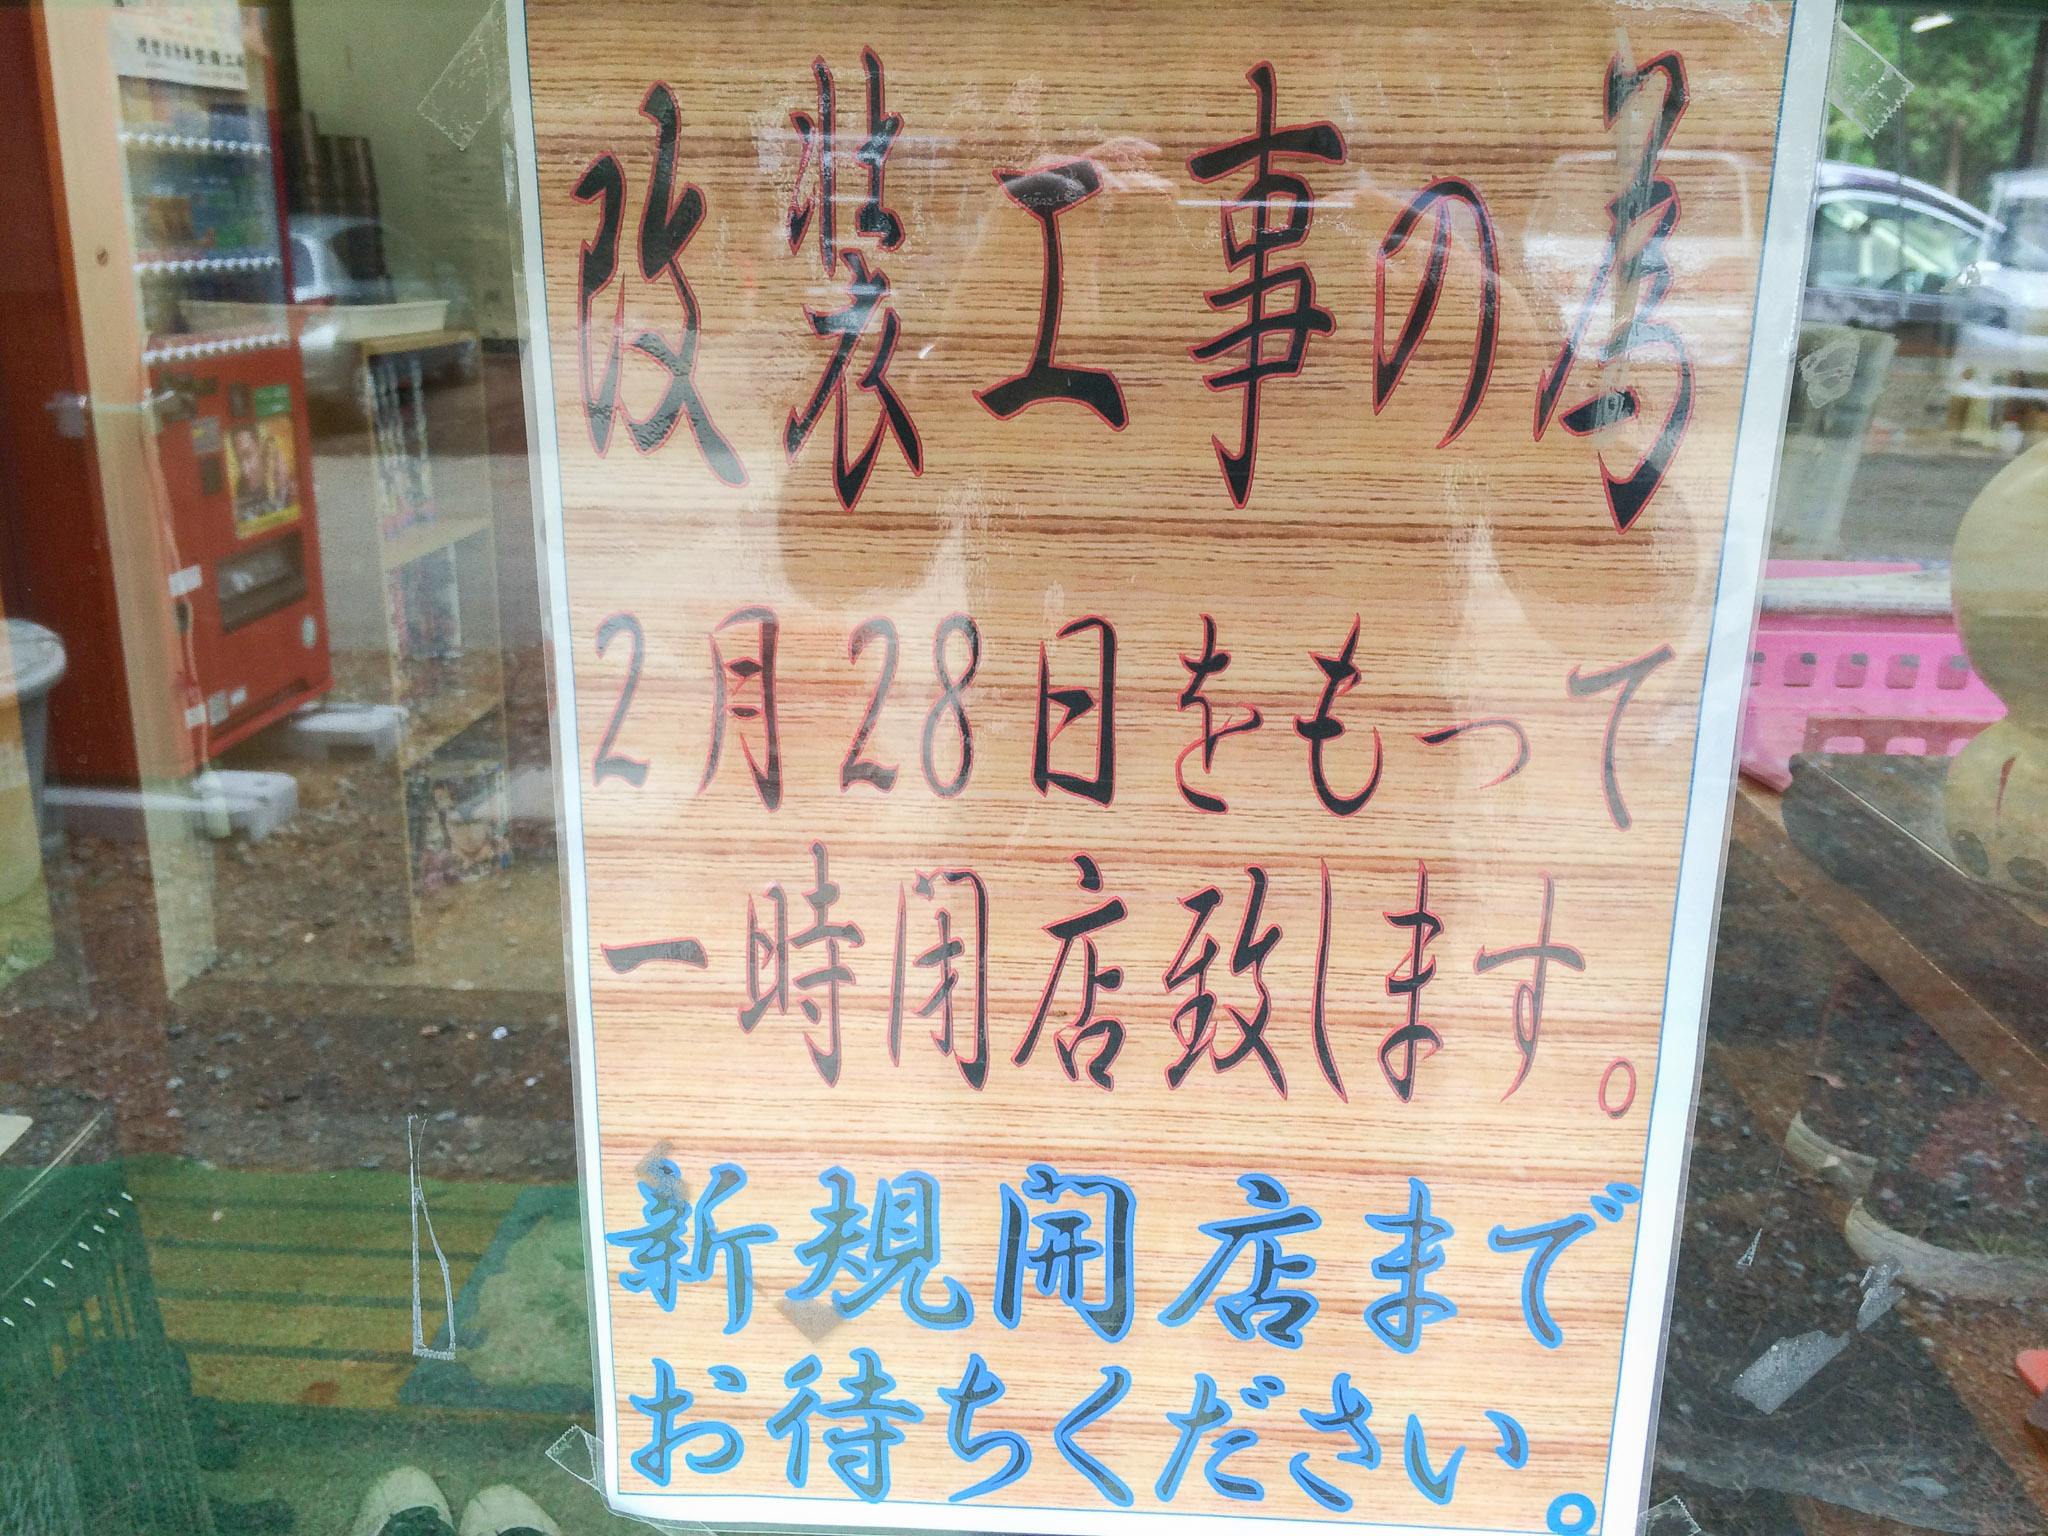 改装工事の為
2月28日をもって
一時閉店致します。
新規開店まで
お待ちください。